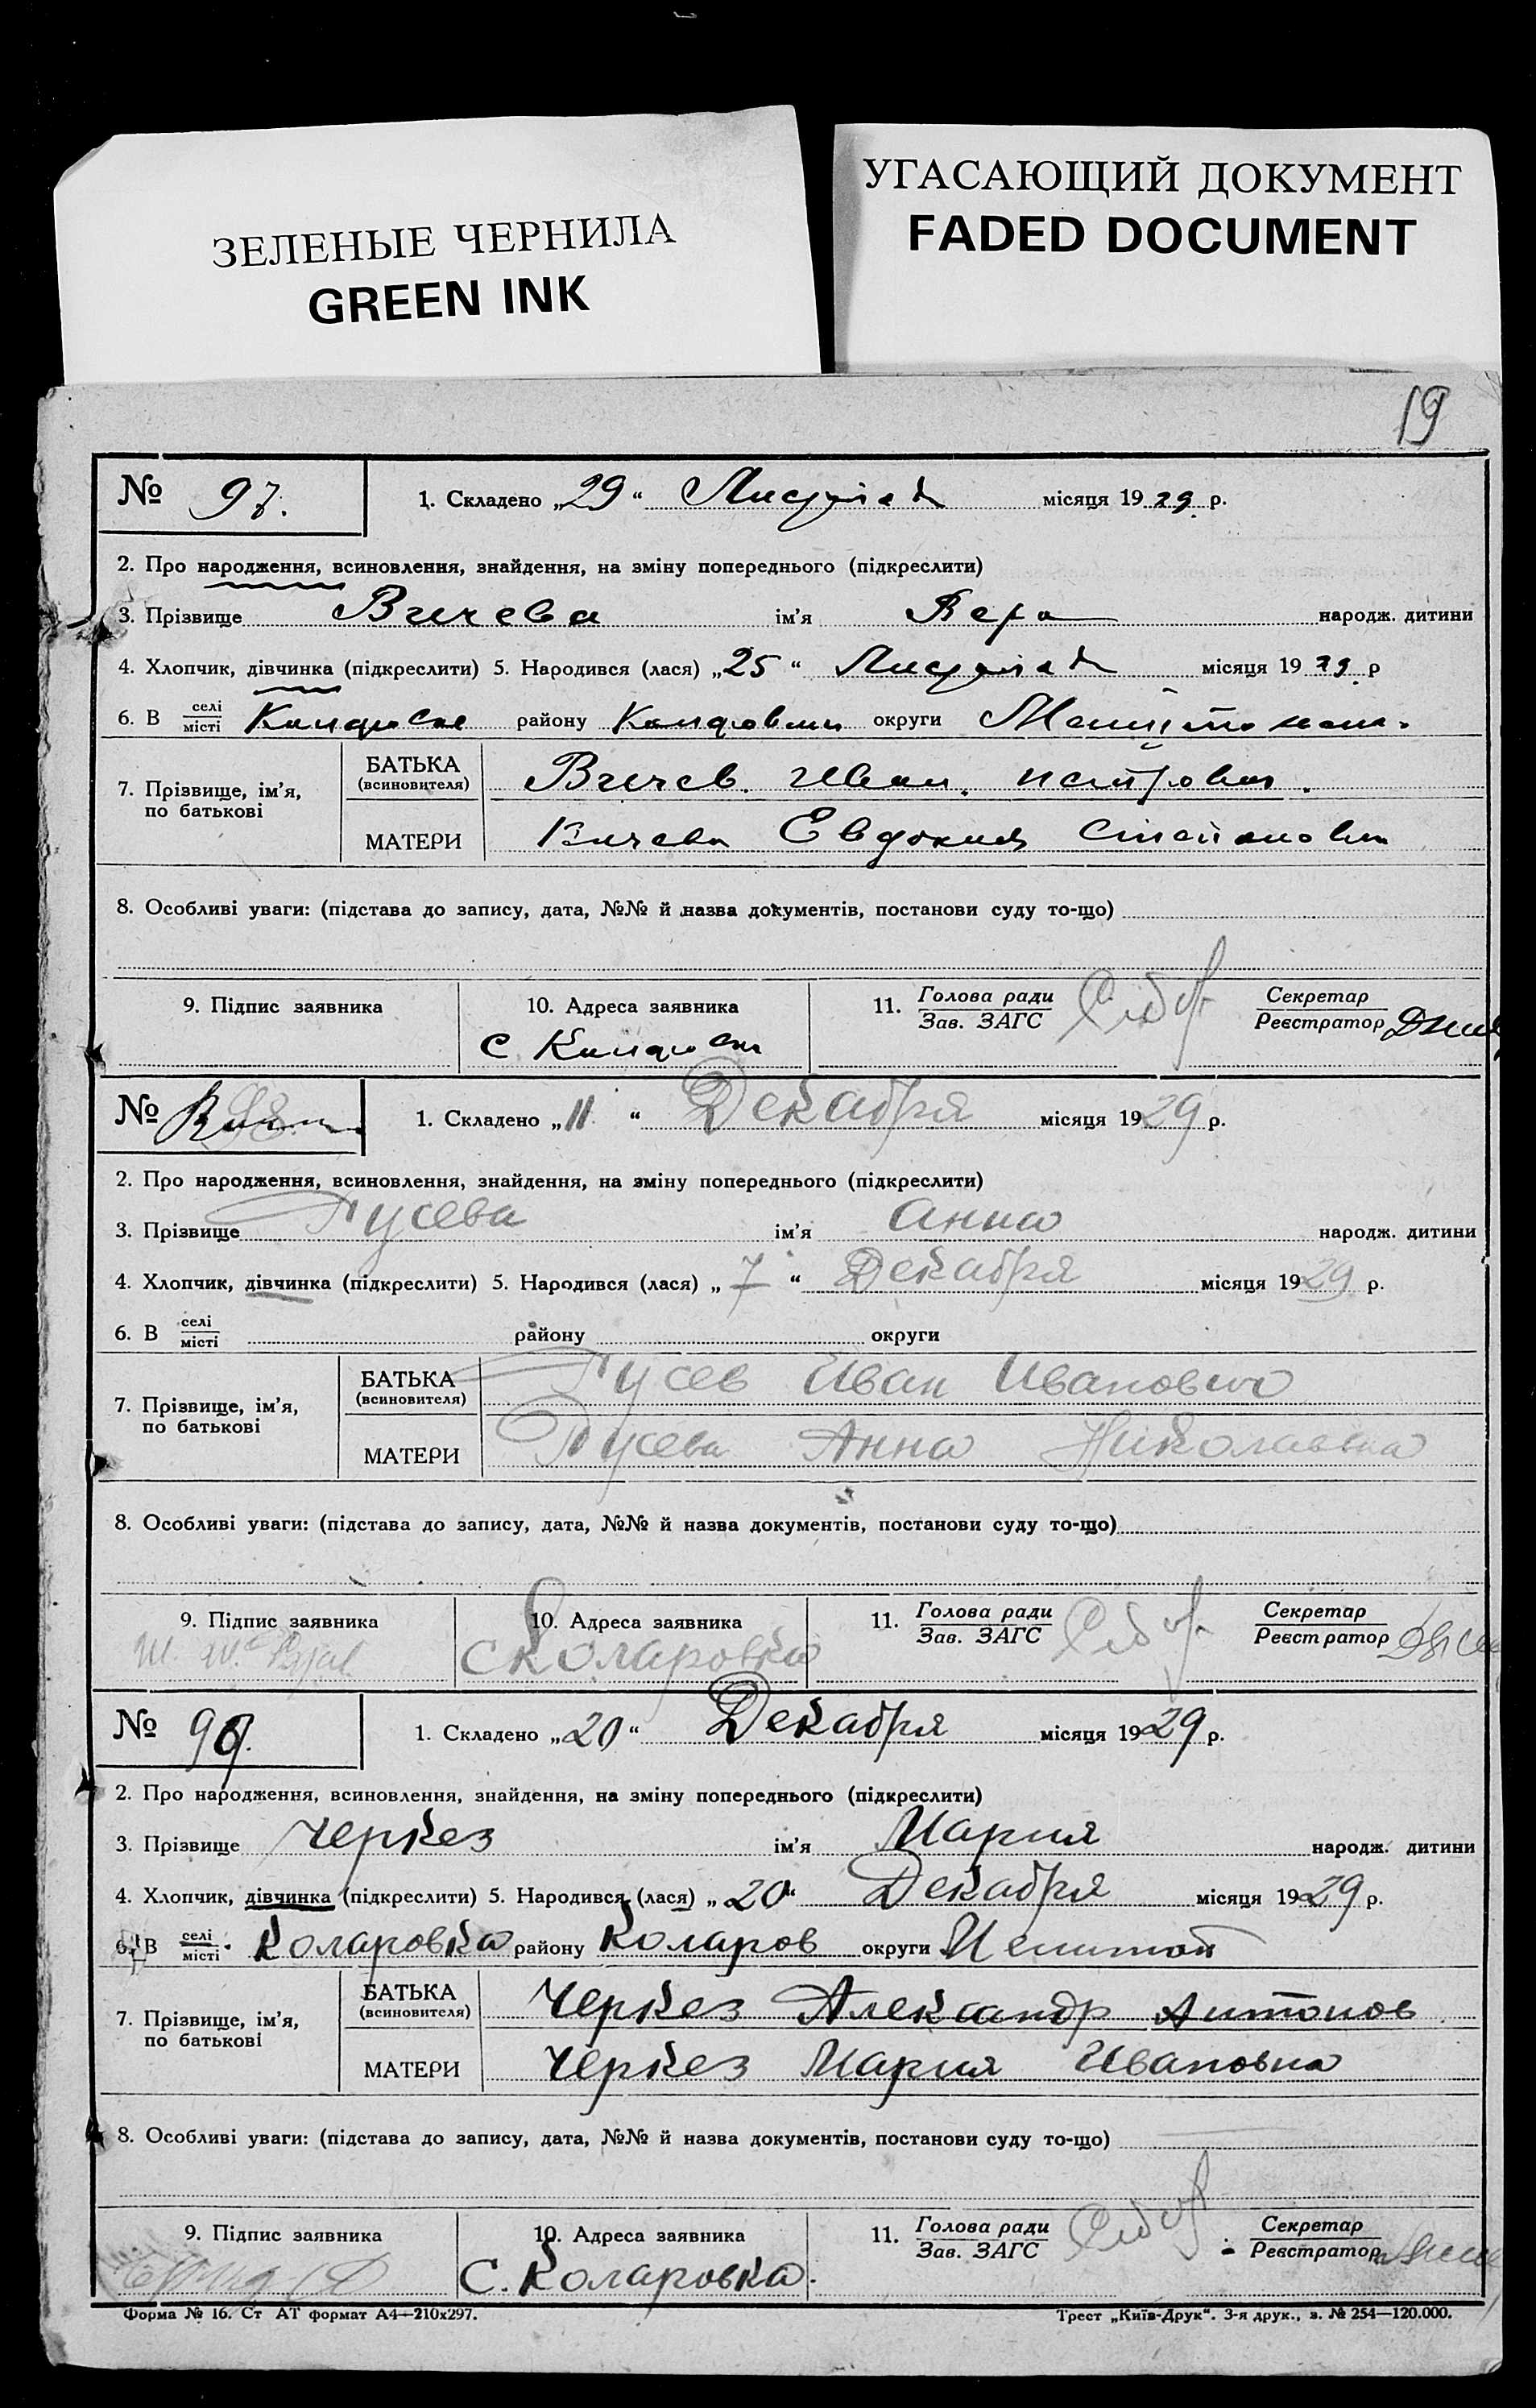 ЗЕЛЕНЫЕ ЧЕРНИЛА
GREEN INK
УГАСАЮЩИЙ ДОКУМЕНТ
FADED DOCUMENT
19
№ 97. 1. Складено „29“ Листопад місяця 1929 р.
2. Про народження, всиновлення, знайдення, на зміну попереднього (підкреслити)
3. Прізвище ім'я Вера народж. дитини
4. Хлопчик, дівчинка (підкреслити) 5. Народився (лася) „25“ Листопад місяця 1929 р
6. В селі місті району округи
7. Прізвище, ім'я, по батькові
БАТЬКА (всиновителя) Иван Петрович
МАТЕРИ Евдокия Степановна
8. Особливі уваги: (підстава до запису, дата, №№ й назва документів, постанови суду то-що)
9. Підпис заявника
10. Адреса заявника
с
11. Голова ради Зав. ЗАГС
Секретар Реєстратор
№ 98. 1. Складено „11“ Декабря місяця 1929 р.
2. Про народження, всиновлення, знайдення, на зміну попереднього (підкреслити)
3. Прізвище Гусева ім'я Анна народж. дитини
4. Хлопчик, дівчинка (підкреслити) 5. Народився (лася) „7“ Декабря місяця 1929 р.
6. В селі місті району округи
7. Прізвище, ім'я, по батькові
БАТЬКА (всиновителя) Гусев Иван Иванович
МАТЕРИ Гусева Анна Николаевна
8. Особливі уваги: (підстава до запису, дата, №№ й назва документів, постанови суду то-що)
9. Підпис заявника
10. Адреса заявника
С Коларовка
11. Голова ради Зав. ЗАГС
Секретар Реєстратор
№ 99. 1. Складено „20“ Декабря місяця 1929 р.
2. Про народження, всиновлення, знайдення, на зміну попереднього (підкреслити)
3. Прізвище Черкез ім'я Мария народж. дитини
4. Хлопчик, дівчинка (підкреслити) 5. Народився (лася) „20“ Декабря місяця 1929 р.
6. В селі місті Коларовка району Коларов округи
7. Прізвище, ім'я, по батькові
БАТЬКА (всиновителя) Черкез Александр Антонов
МАТЕРИ Черкез Мария Ивановна
8. Особливі уваги: (підстава до запису, дата, №№ й назва документів, постанови суду то-що)
9. Підпис заявника
10. Адреса заявника
С. Коларовка.
11. Голова ради Зав. ЗАГС
Секретар Реєстратор
Форма № 16. Ст АТ формат А4—210х297.
Трест „Київ-Друк“. 3-я друк., з. № 254—120.000.